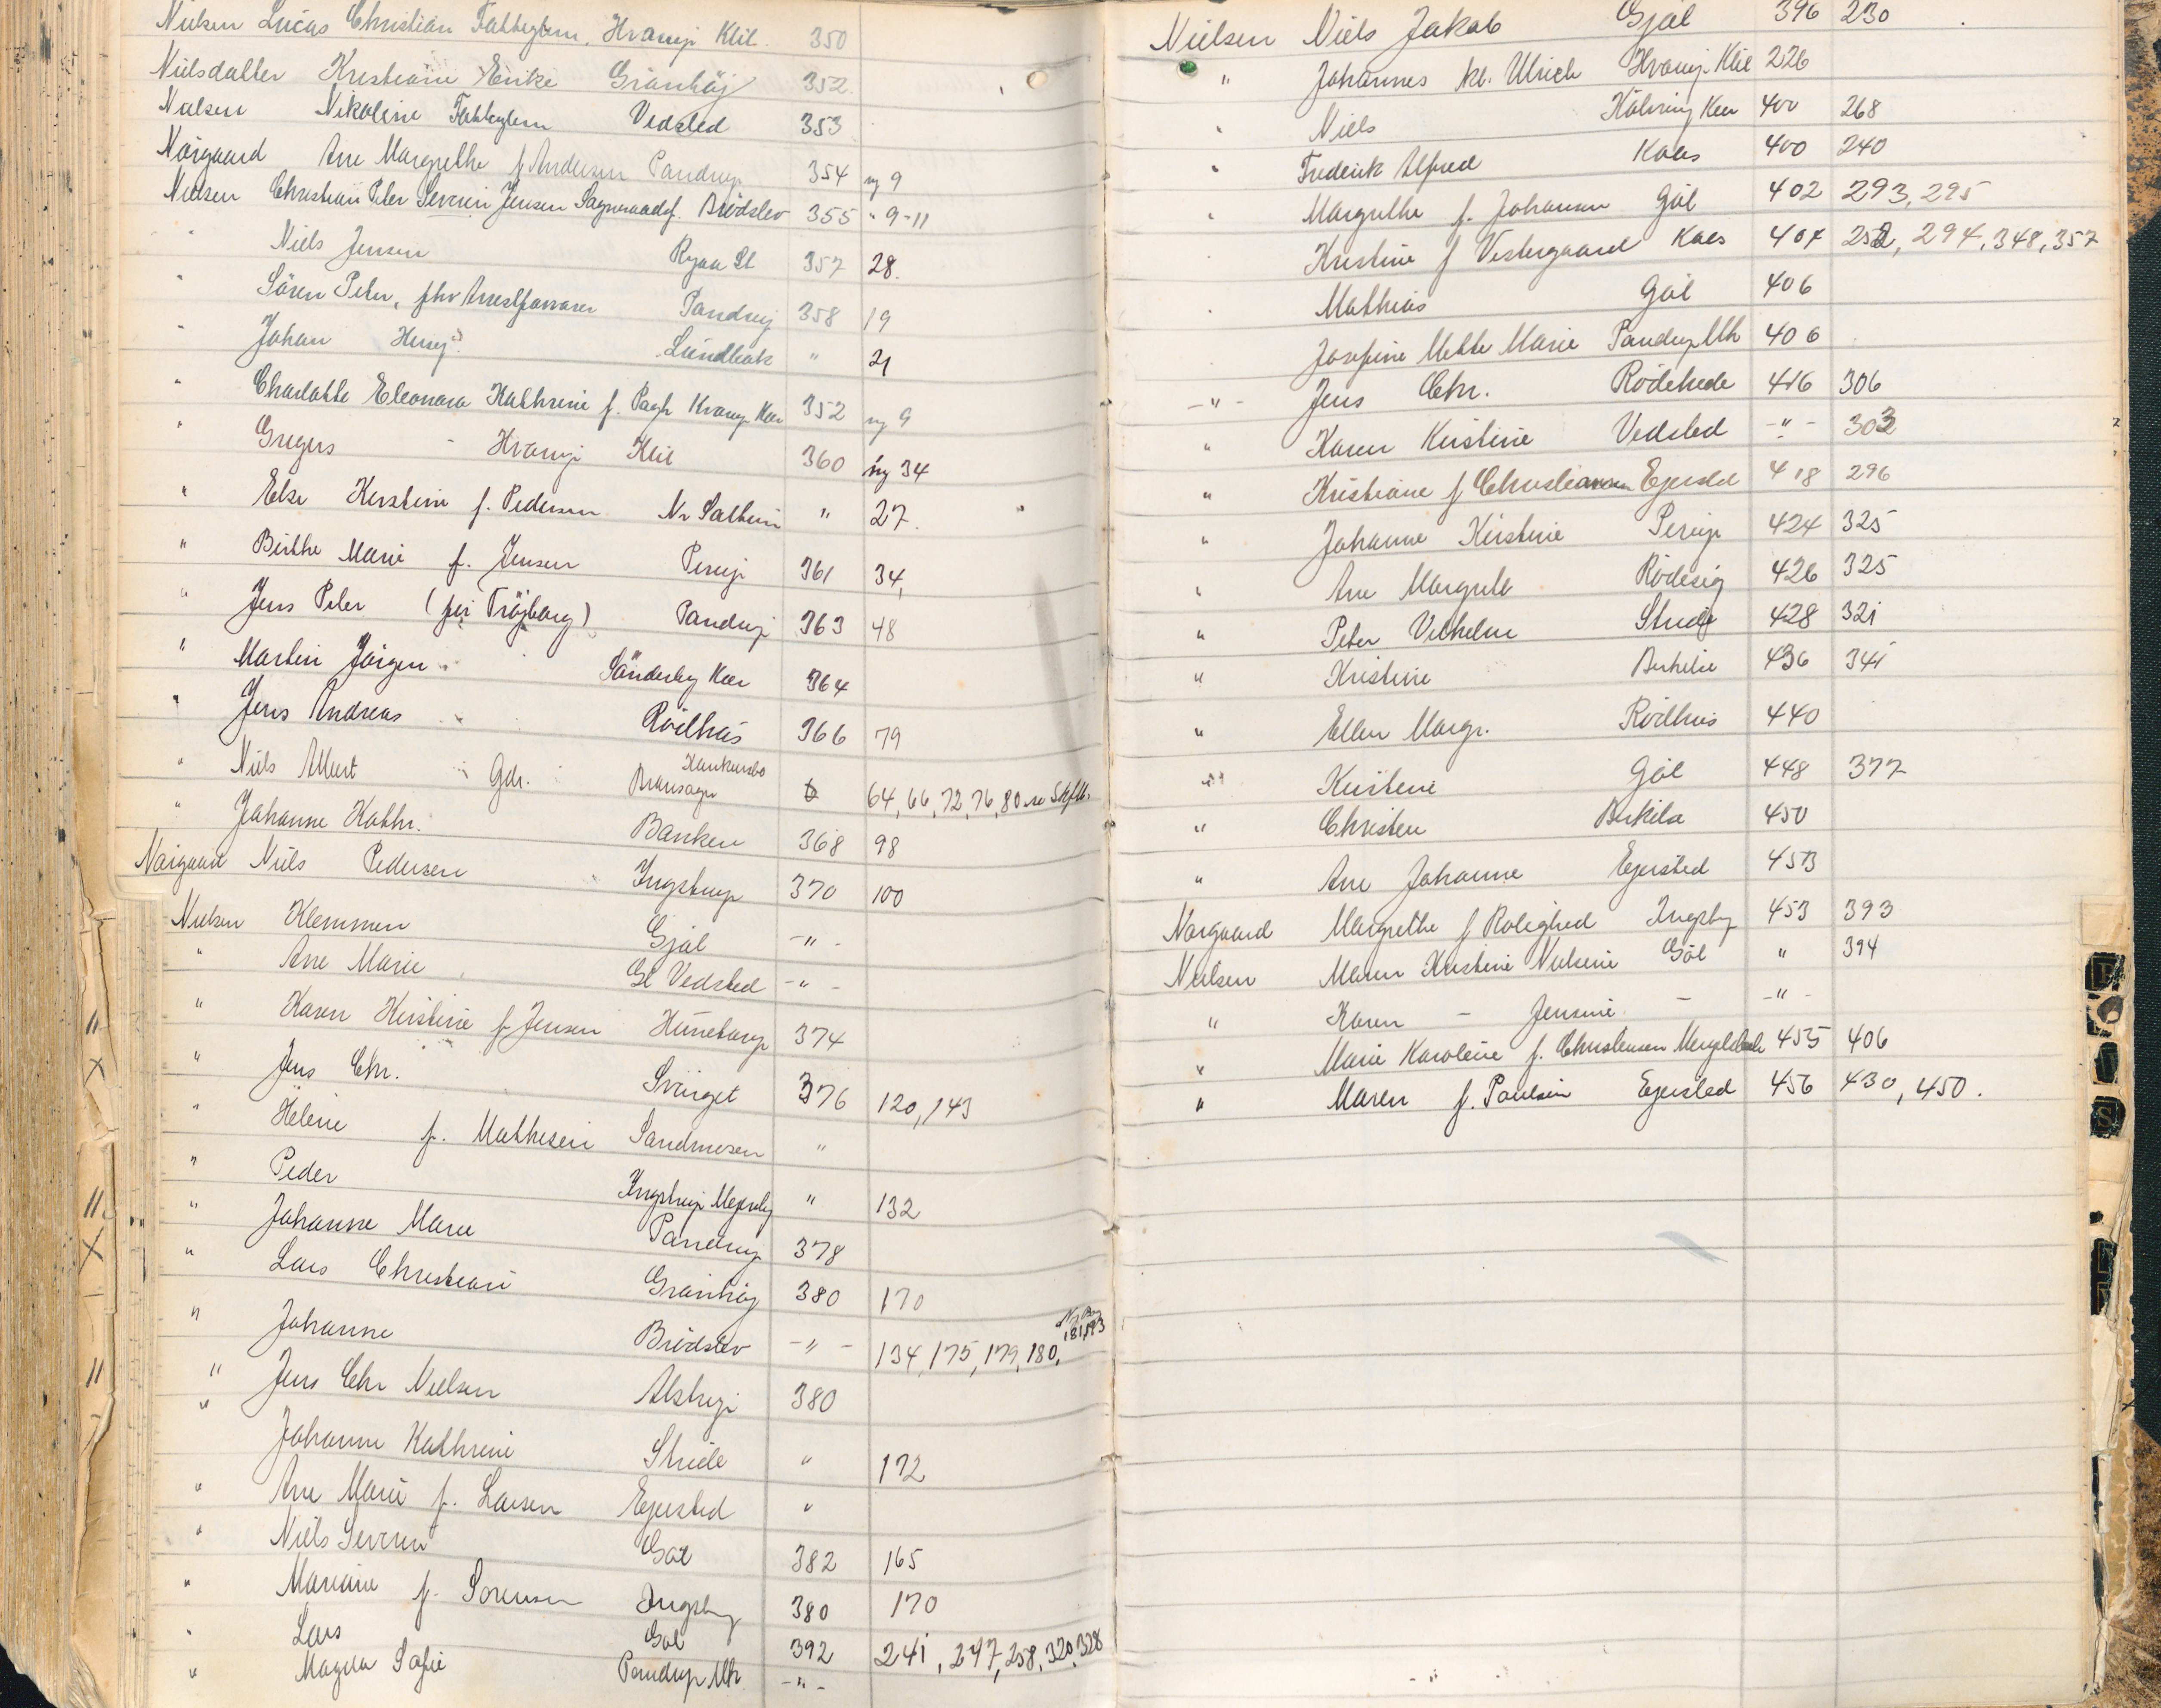 Nielsen Lucas Christian Fattiglem, Hvorup Klit. 350
Nielsdatter Kristiane Enke Grønhøj 352.
Nielsen Nikoline Fattiglem Vedsted 353
Nørgaard Ane Margrethe f Andersen Pandrup 354 ny 9
Nielsen Christian Peter Severin Jensen Sogneraadsf. Brødslev 355 " 9-11
" Niels Jensen Ryaa St 357 28.
" Søren Peter, fhv Arrestforvarer Pandrup 358 19
" Johan Lundbak " 21
" Charlotte Eleonora Kathrine f. Pagh Hvorup Kær 352 ny 9
" Gregers - Hvorup Klit 360 ny 34
" Else Kirstine f. Pedersen Nr Saltum " 27.
" Birthe Marie f. Jensen Pirup 361 34,
" Jens Peter (fri Trøjborg) Pandrup 363 48
" Martin Jørgen Sønderby Kær 364
" Jens Andreas Rødhus 366 79
" Niels Albert Gdr. 64, 66, 72, 76, 80
" Johanne Kathr. Banken 368 98
Nørgaard Niels Pedersen Ingstrup 370 100
Nielsen Klemmen Gjøl -"-
" Ane Marie Gl Vedsted -"-
" Karen Kirstine f Jensen Hunetorp 374
" Jens Chr. Svinget 376 120, 143
" Helene f. Mathisen Sandmosen "
" Peder Ingstrup Mejeriby " 132
" Johanne Marie Pandrup 378
" Lars Christian Grønhøj 380 170
" Johanne Brødslev -"- 134, 175, 179, 180,
" Jens Chr Nielsen Alstrup 380
" Johanne Kathrine Stride " 172
" Ane Marie f. Larsen Ejersted "
" Niels Severin Gøl 382 165
" Mariane f. Sørensen Ingstrup 380 170
" Lars Gøl 392 241, 247, 258, 320, 328
" Magda Sofie Pandrup Mk -"-
Nielsen Niels Jakob Gjøl 396 230
" Johannes kl. Ulrich Hvorup Klit 226
" Niels Kær 400 268
" Frederik Alfred Kaas 400 240
" Margrethe f. Johansen Gøl 402 293, 295
" Kristine f Vestergaard Kaas 404 252, 294, 348, 357
" Mathias Gøl 406
Josefine Mette Marie Pandrup Mk 406
-"- Jens Chr. Rødehede 416 306
" Karen Kirstine Vedsted -"- 303
" Kristiane f Christiansen Ejersted 418 296
" Johanne Kirstine Pirup 424 325
" Ane Margrete Rødesig 426 325
" Peter Vilhelm Stride 428 321
" Kristine Birkelse 436 341
" Ellen Margr. Rødhus 440
" Kirstine Gøl 448 377
" Christen Birkelse 450
" Ane Johanne Ejersted 453
Nørgaard Margrethe f Rolighed Ingstrup 453 393
Nielsen Maren Kirstine Nielsine Gøl " 394
" Karen - Jensine - -"-
" Marie Karoline f. Christensen 455 406
" Maren f. Poulsen Ejersted 456 430, 450.